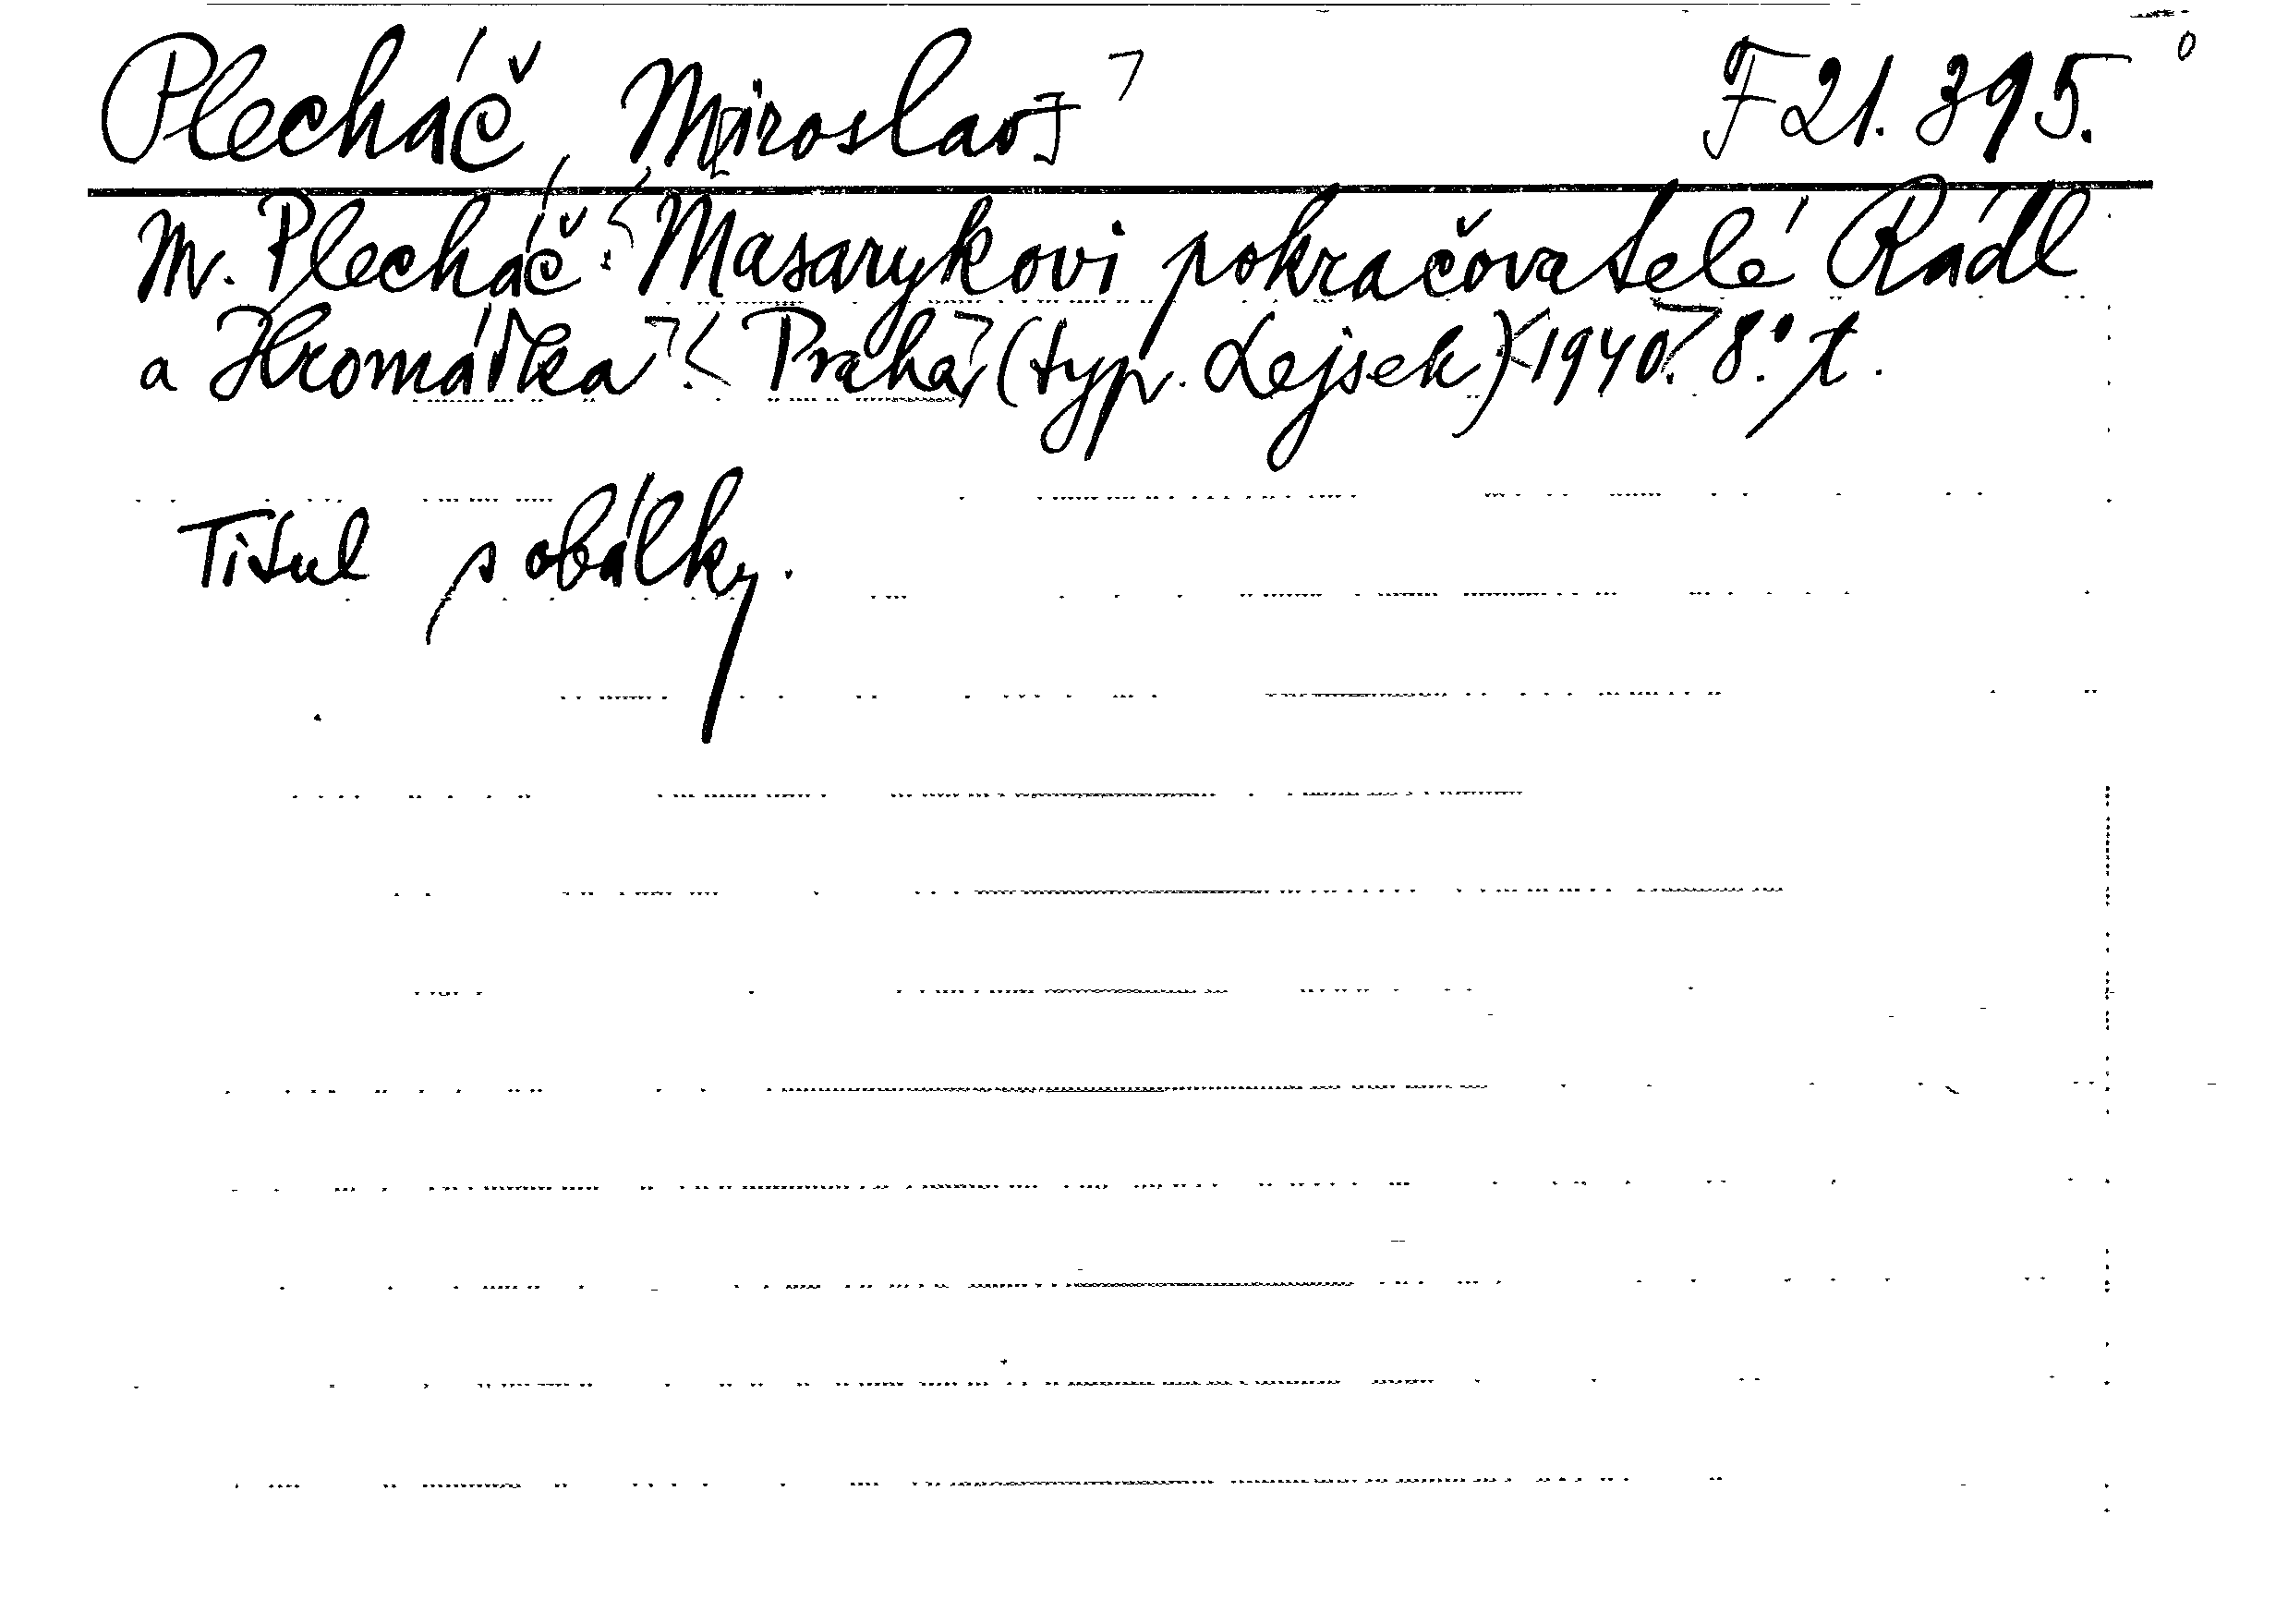 Plecháč, M[iroslav] F 21.395.
M. Plecháč: Masarykovi pokračovatelé Rádl
a Hromádka. Praha, (typ. Lejsek) 1940. 8°. t.
Titul s obálky.